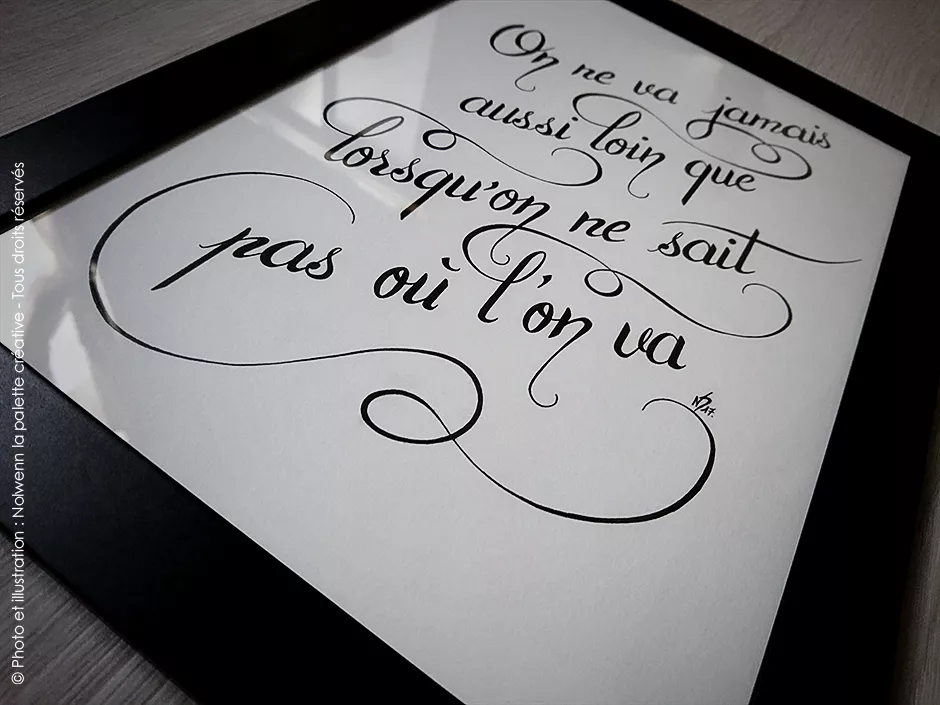 On ne va jamais
aussi loin que
lorsqu'on ne sait
pas où l'on va
© Photo et illustration : Nolwenn la palette créative - Tous droits réservés